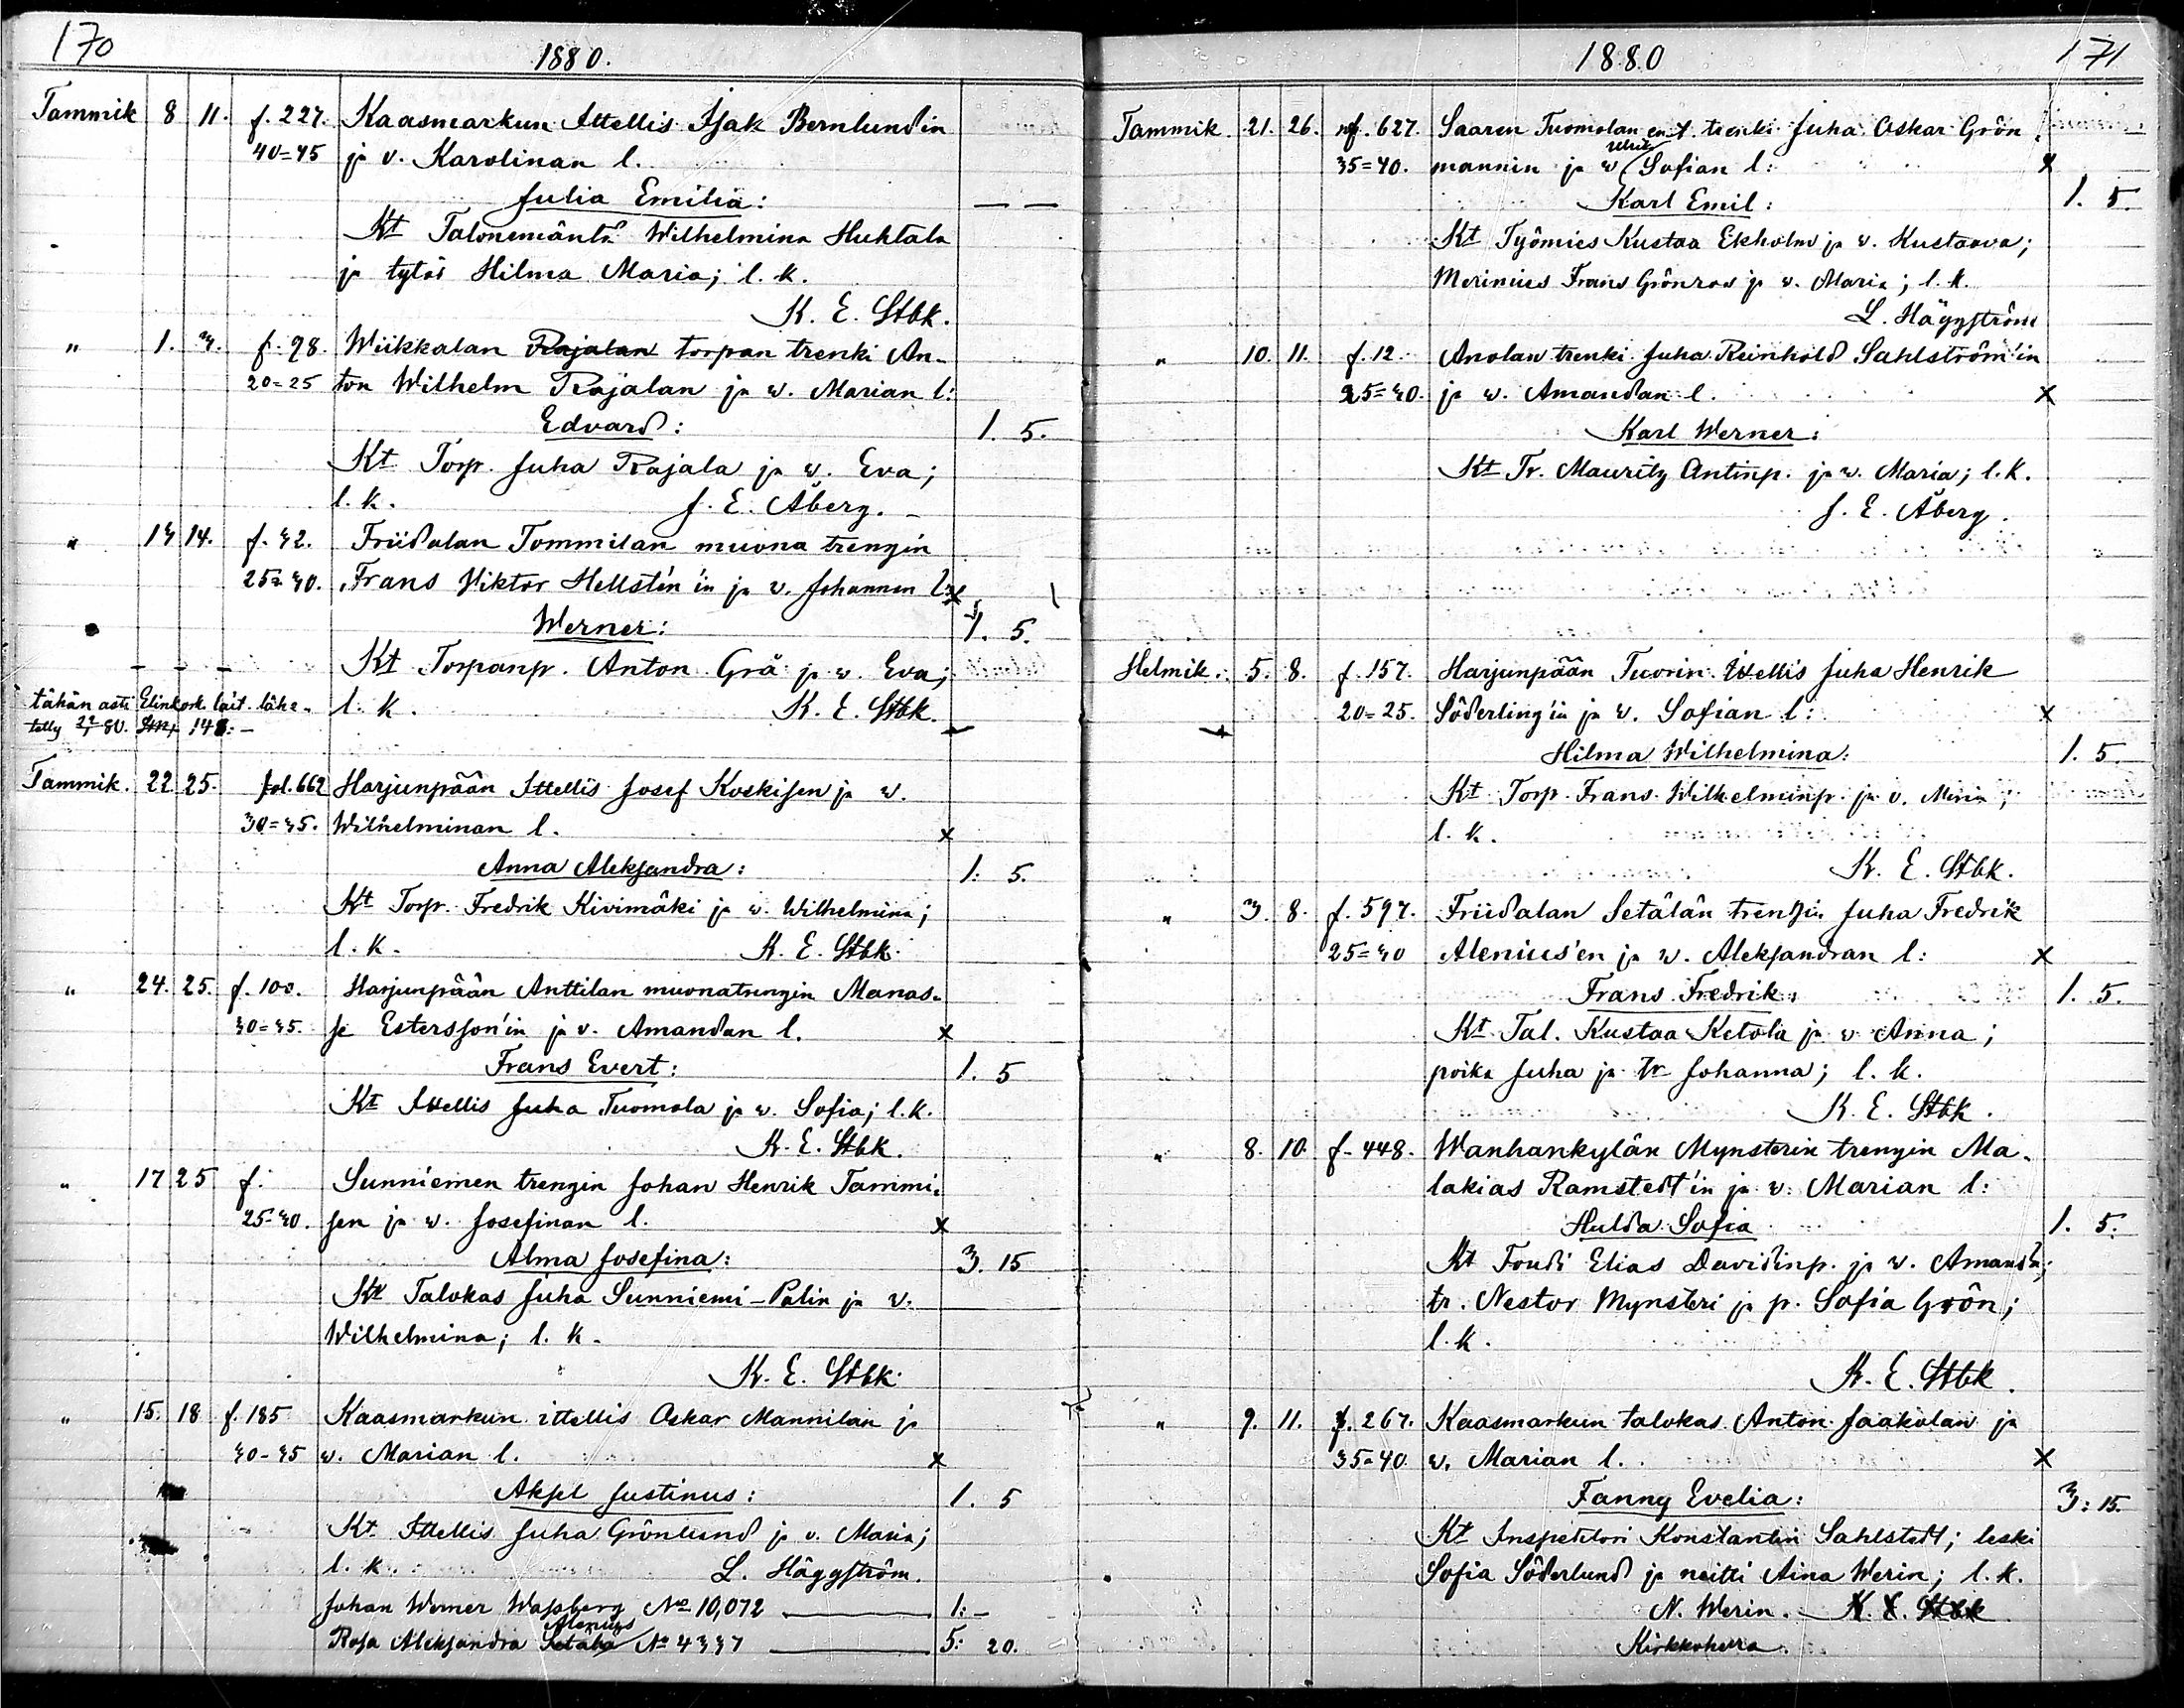 170
1880.
Tammik 8 11. f. 227. Kaasmarkun Ittellis Isak Bernlundin
40=45 ja v. Karolinan l.
Julia Emilia: — —
Kt Talonemäntä Wilhelmina Huhtala
ja tytär Hilma Maria; l. k.
K. E. Stbk.
" 1. 3. f. 98. Wiikkalan Rajalan torpan trenki An-
20=25 ton Wilhelm Rajalan ja w. Marian l:
Edvard: 1. 5.
Kt Torp. Juha Rajala ja w. Eva;
l. k. J. E. Åberg.
" 13 14. f. 32. Friidalan Tommilan muona trengin
25=30. Frans Viktor Hellstén'in ja v. Johannan l: x
Werner: 1. 5.
Kt Torpanp. Anton Grå ja w. Eva;
tähän asti Elinkork. lait. lähe- l. k. K. E. Stbk.
tetty 80. 148:-
Tammik. 22 25. fol. 662 Harjunpään Ittellis Josef Koskisen ja w.
30=35. Wilhelminan l. x
Anna Aleksandra: 1. 5.
Kt Torp. Fredrik Kivimäki ja w. Wilhelmina;
l. k. K. E. Stbk.
" 24. 25. f. 100. Harjunpään Anttilan muonatrengin Manas-
30=35. se Estersson'in ja v. Amandan l. x
Frans Evert: 1. 5
Kt Ittellis Juha Tuomola ja w. Sofia; l. k.
K. E. Stbk.
" 17 25 f. Sunniemen trengin Johan Henrik Tammi-
25-30. sen ja w. Josefinan l. x
Alma Josefina: 3. 15
Kt Talokas Juha Sunniemi-Palin ja v.
Wilhelmina; l. k.
K. E. Stbk.
" 15. 18 f. 185 Kaasmarkun ittellis Oskar Mannilan ja
30-35 w. Marian l. x
Aksel Justinus: 1. 5
Kt. Ittellis Juha Grönlund ja v. Maria;
l. k. L. Häggström.
Johan Werner Wassberg No 10,072 — 1:-
Alenius
Rosa Aleksandra Setala No 4337 — 5: 20.
1880
171
Tammik. 21. 26. nf. 627. Saaren Tuomolan ent. trenki Juha Oskar Grön-
Ulrik
35=40. mannin ja w Sofian l: x
Karl Emil: 1. 5.
Kt Työmies Kustaa Ekholm ja w. Kustaava;
Merimies Frans Grönroos ja w. Maria; l. k.
L. Häggström
" 10. 11. f. 12. Anolan trenki Juha Reinhold Sahlström'in
25=30. ja w. Amandan l. x
Karl Werner:
Kt Tr. Mauritz Antinp. ja w. Maria; l. k.
J. E. Åberg.
Helmik. 5. 8. f. 157. Harjunpään Tuorin Ittellis Juha Henrik
20=25. Söderling'in ja w. Sofian l: x
Hilma Wilhelmina: 1. 5.
Kt Torp. Frans Wilhelminp. ja v. Miina;
l. k.
K. E. Stbk.
" 3. 8. f. 597. Friidalan Setälän trengin Juha Fredrik
25=30 Alenius'en ja w. Aleksandran l: x
Frans Fredrik: 1. 5.
Kt Tal. Kustaa Ketola ja w. Anna;
poika Juha ja tr Johanna; l. k.
K. E. Stbk.
" 8. 10. f. 448. Wanhankylän Mynsterin trengin Ma-
lakias Ramstedt'in ja w. Marian l:
Hulda Sofia 1. 5.
Kt Foudi Elias Davidinp. ja w. Amanda;
tr. Nestor Mynsteri ja p. Sofia Grön;
l. k.
K. E. Stbk.
" 9. 11. f. 267. Kaasmarkun talokas Anton Jaakolan ja
35=40 w. Marian l. x
Fanny Evelia: 3: 15.
Kt Inspehtori Konstantin Sahlstedt; leski
Sofia Söderlund ja neitti Aina Werin; l. k.
N. Werin. K. E. Stbk
Kirkkoherra.